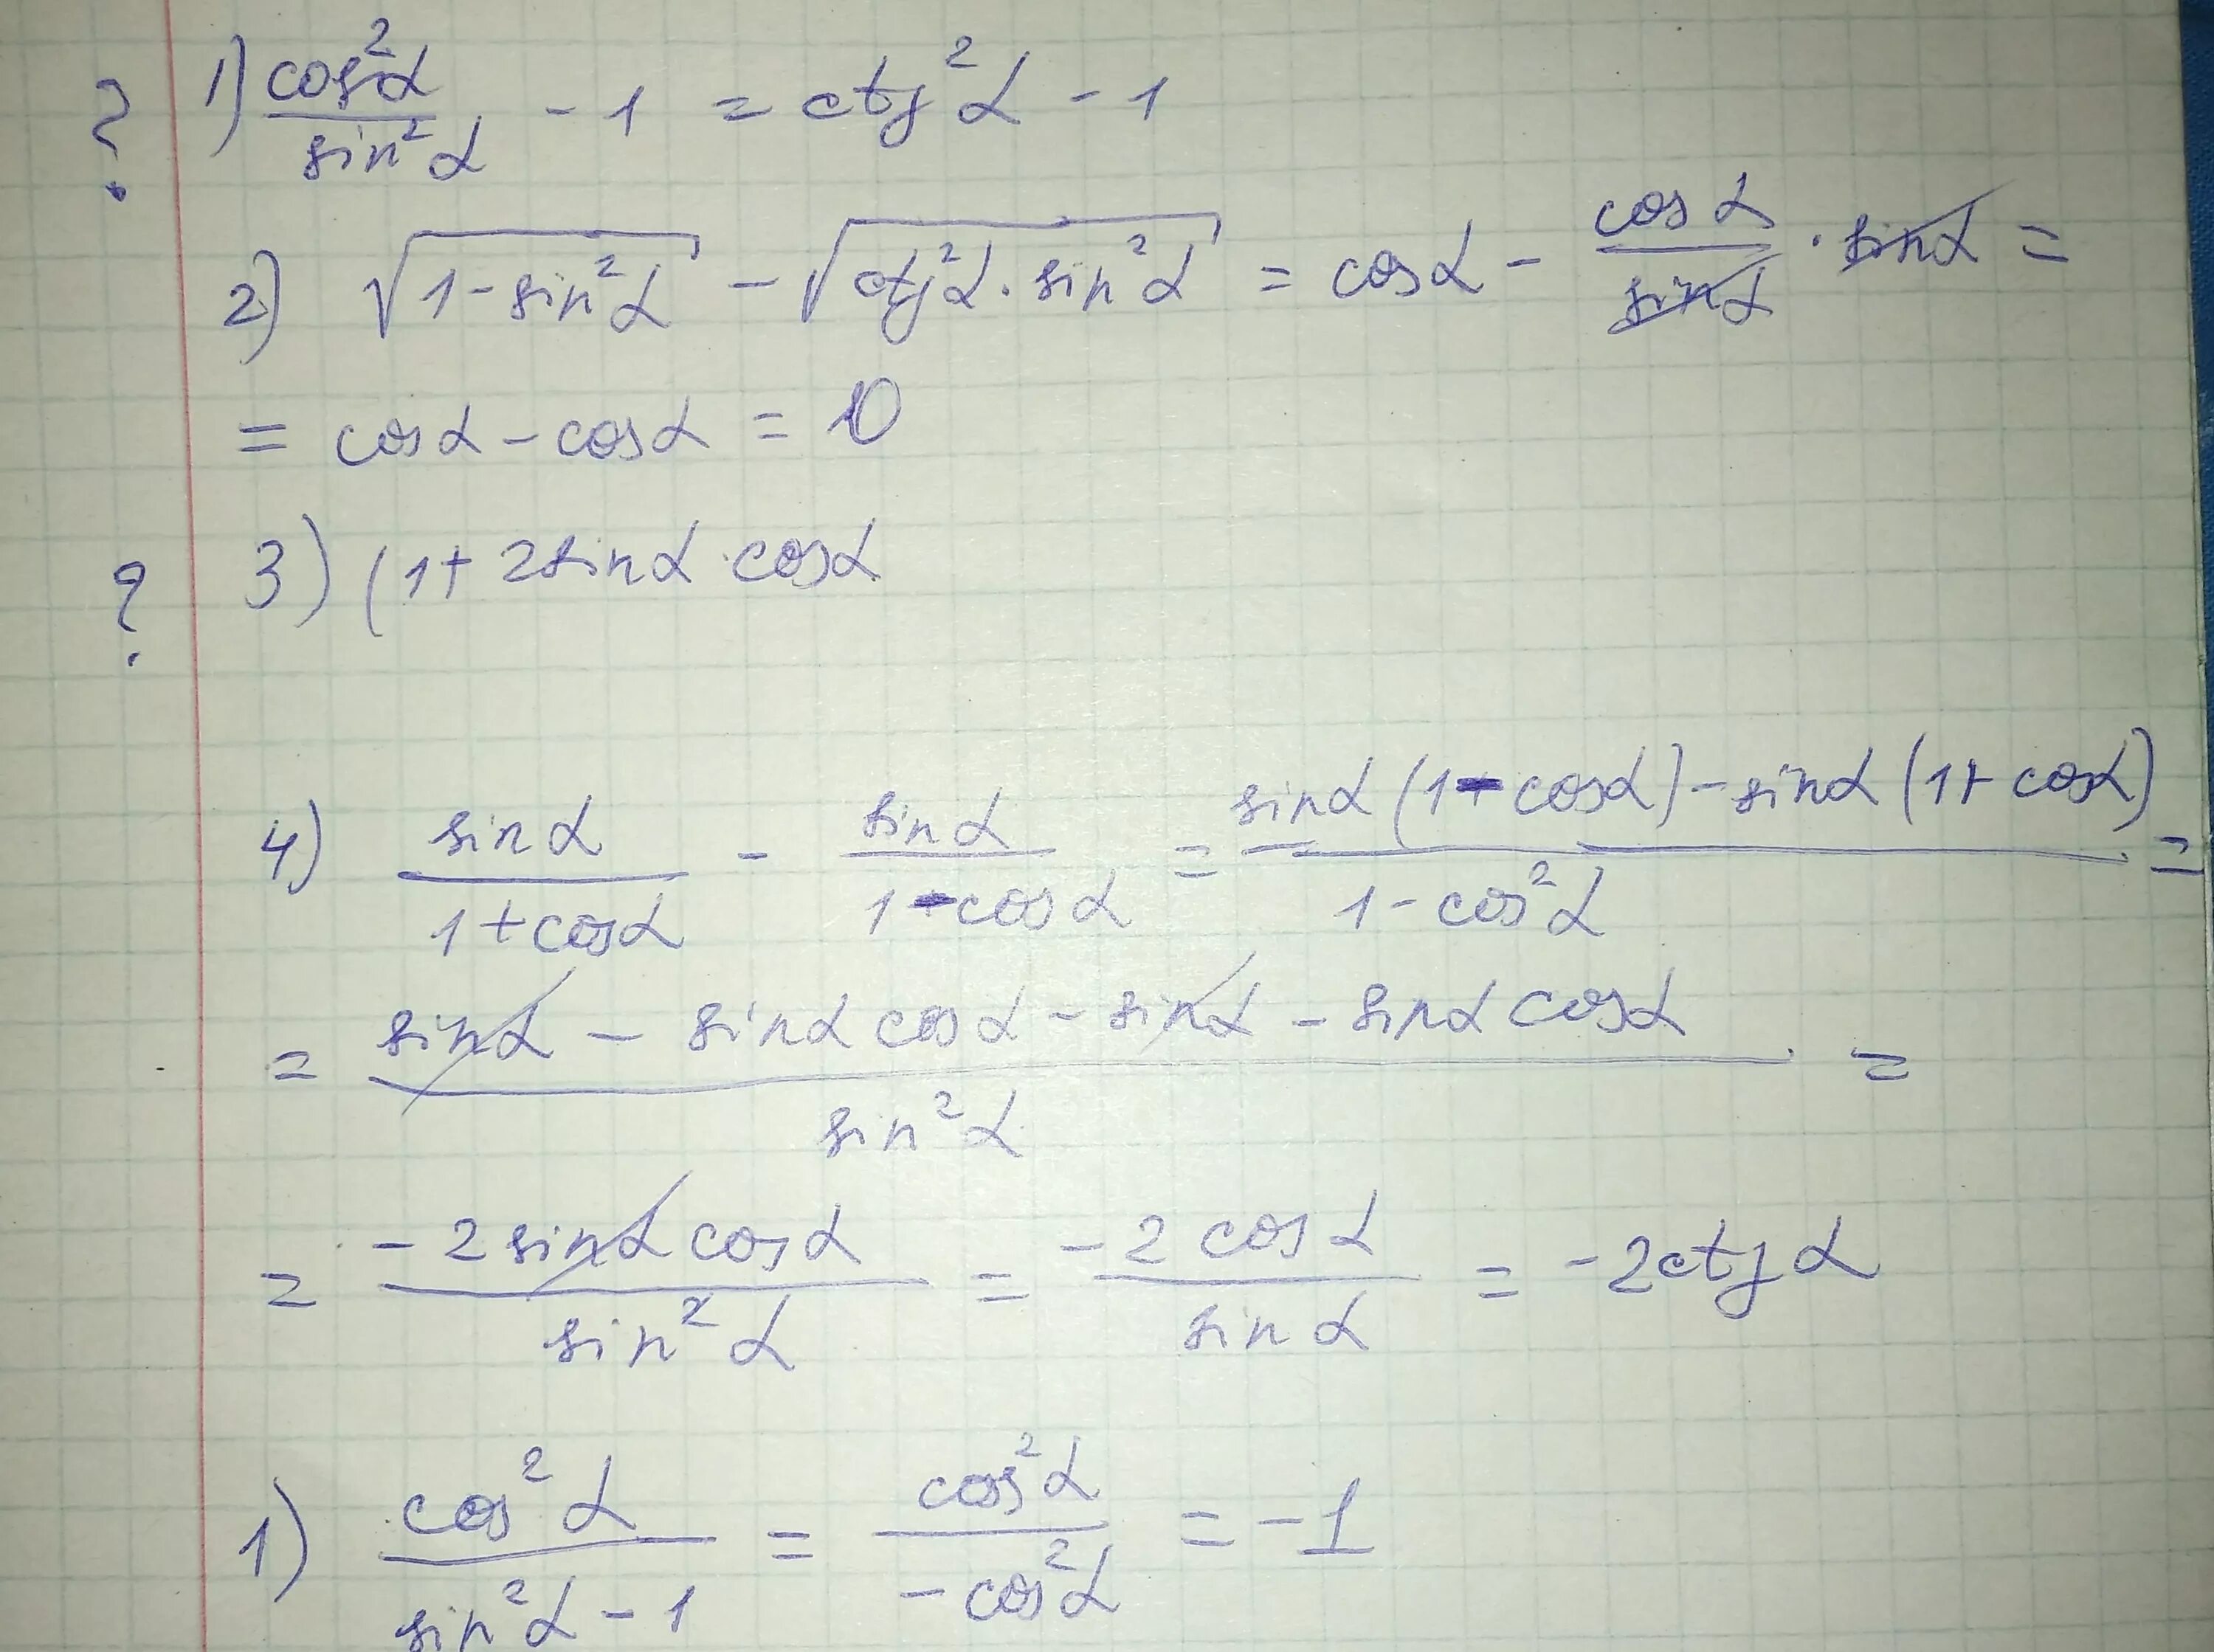 ? 1) cos²α/sin²α - 1 = ctg²α - 1
2) √(1-sin²α) - √(ctg²α · sin²α) = cosα - cosα/sinα · sinα =
= cosα - cosα = 0
? 3) (1+ 2sinα cosα
4) sinα/(1+cosα) - sinα/(1-cosα) = (sinα(1-cosα) - sinα(1+cosα))/(1-cos²α) =
= (sinα - sinα cosα - sinα - sinα cosα)/sin²α =
= -2 sinα cosα/sin²α = -2 cosα/sinα = -2ctgα
1) cos²α/(sin²α - 1) = cos²α/(-cos²α) = -1